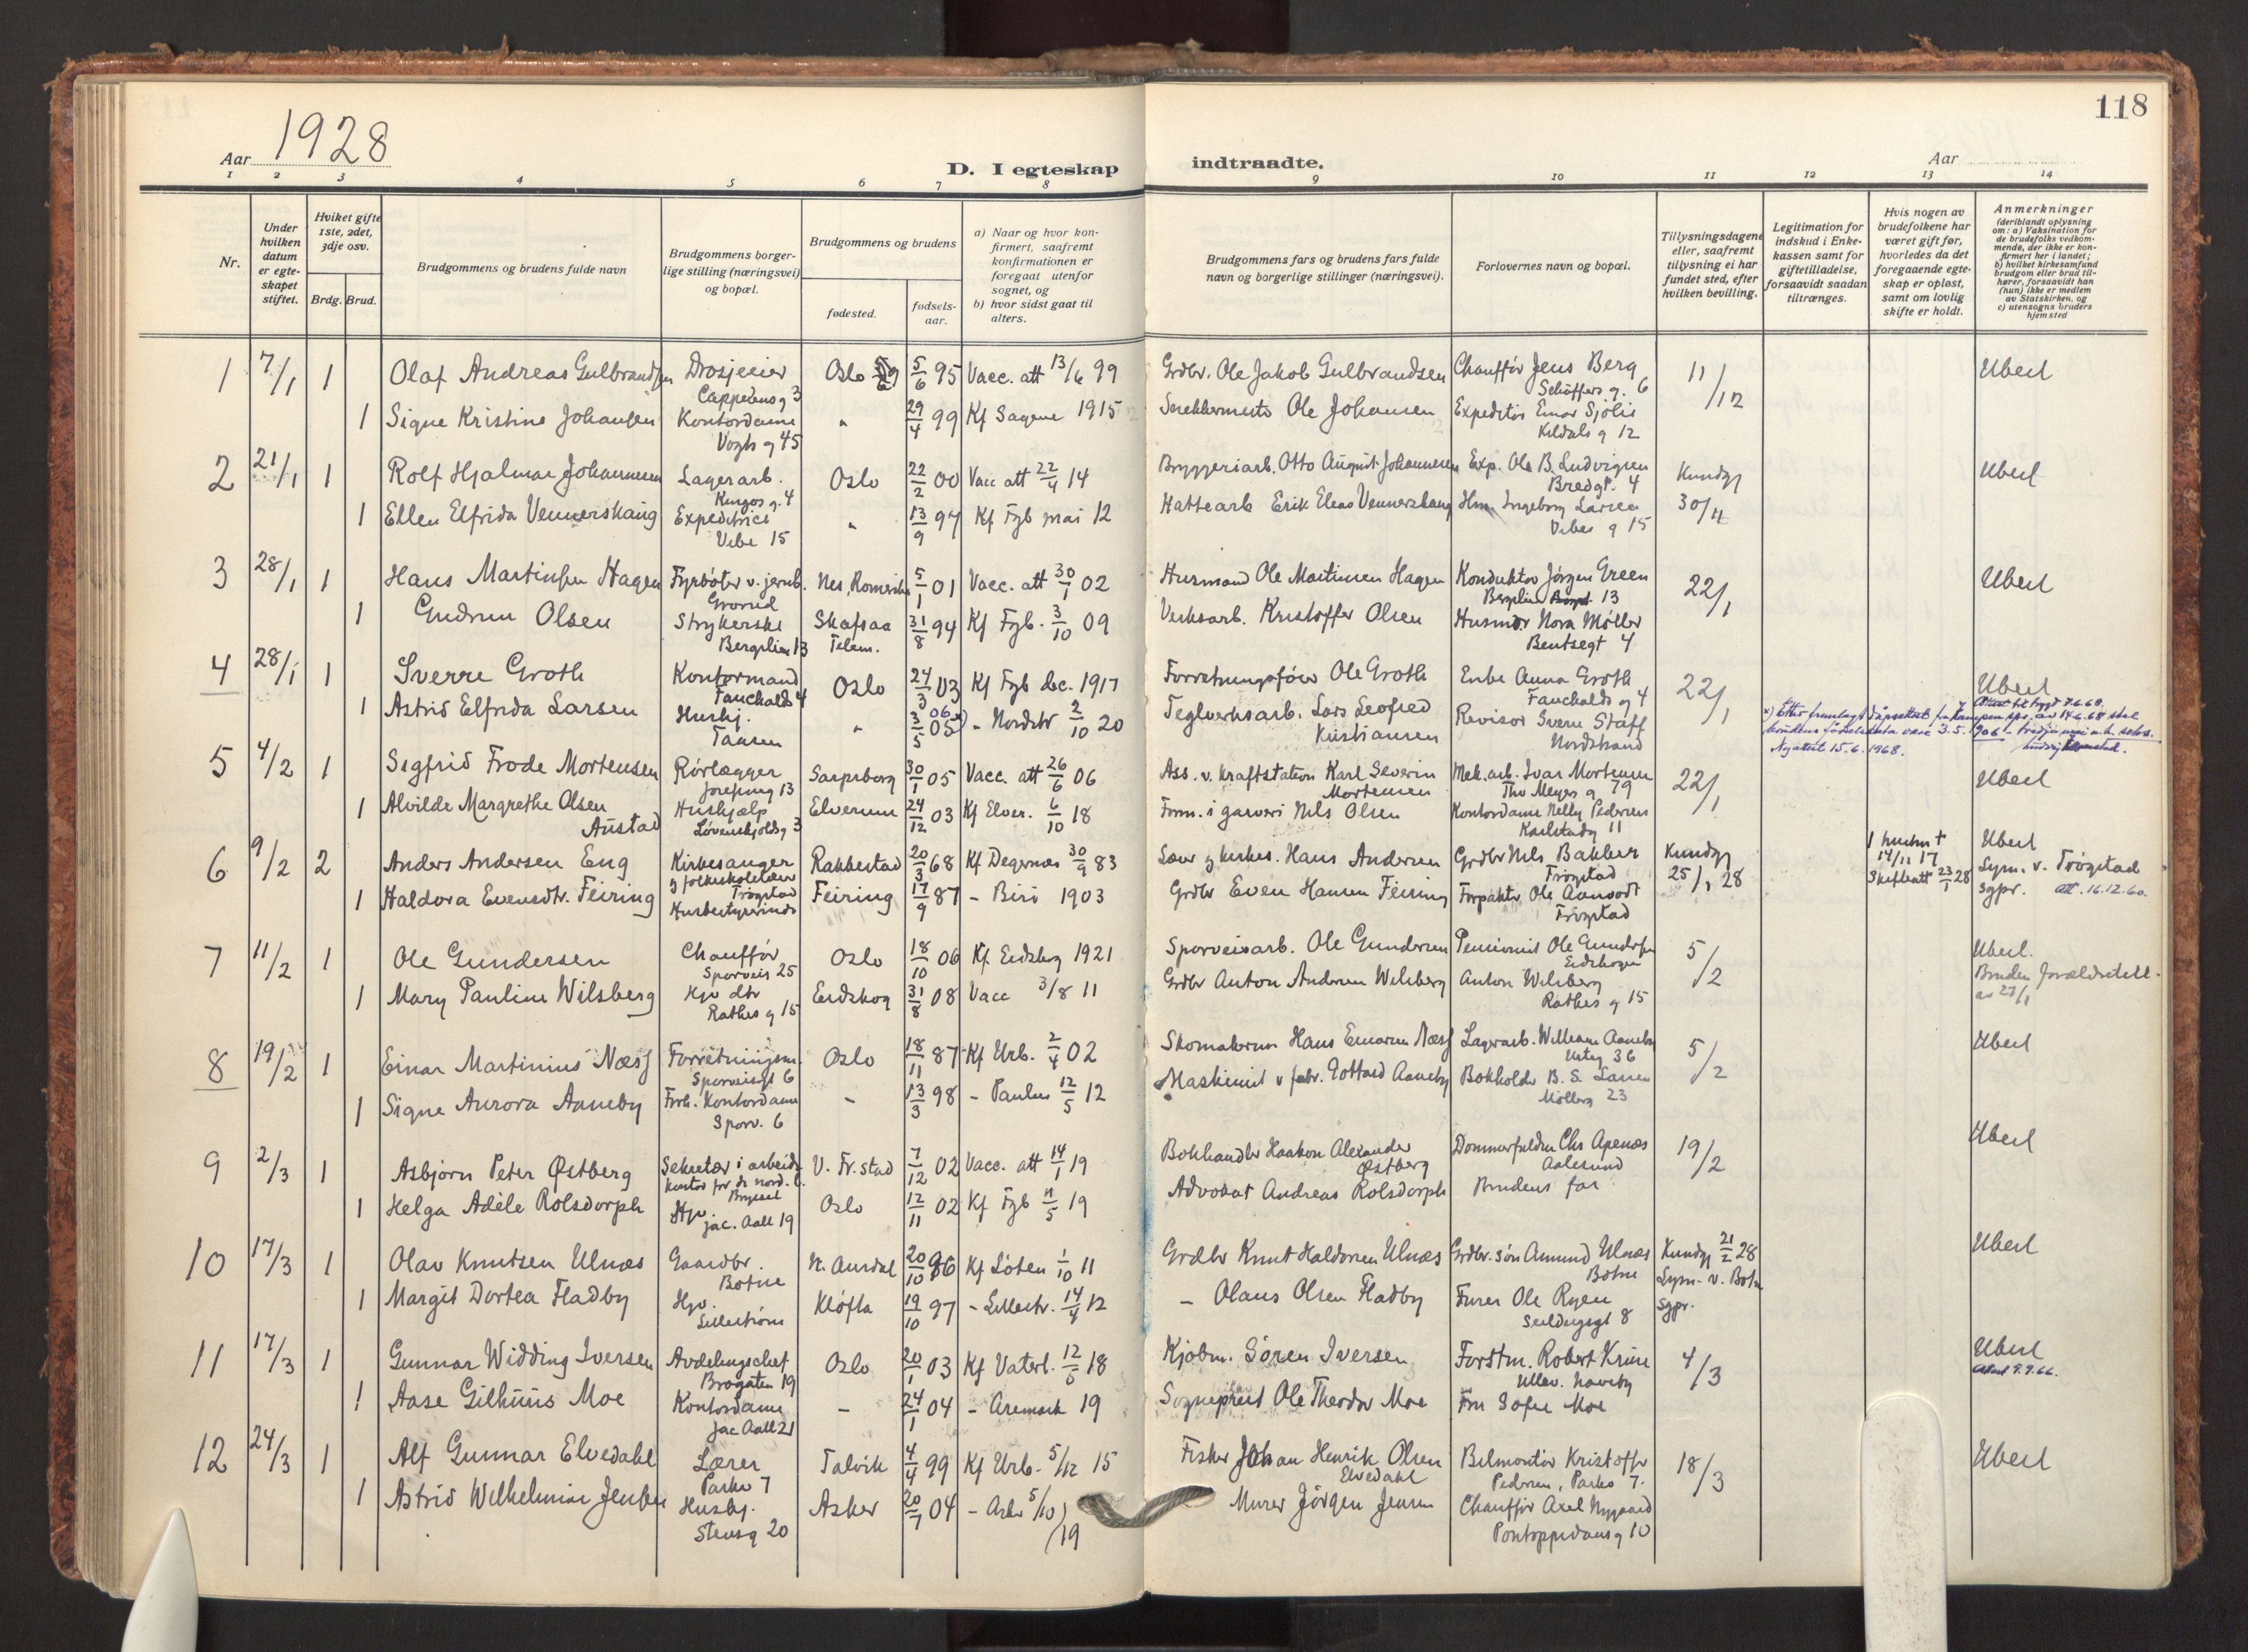 118
Aar 1928
D. I egteskap indtraadte.
Aar
1 2 3 4 5 6 7 8 9 10 11 12 13 14
Nr.
Under hvilken datum er egteskapet stiftet.
Hviket gifte 1ste, 2det, 3dje osv.
Brdg. Brud.
Brudgommens og brudens fulde navn
Brudgommens borgerlige stilling (næringsvei) og bopæl.
Brudgommens og brudens
fødested.
fødselsaar.
a) Naar og hvor konfirmert, saafremt konfirmationen er foregaat utenfor sognet, og
b) hvor sidst gaat til alters.
Brudgommens fars og brudens fars fulde navn og borgerlige stillinger (næringsvei).
Forlovernes navn og bopæl.
Tillysningsdagene eller, saafremt tillysning ei har fundet sted, efter hvilken bevilling.
Legitimation for indskud i Enkekassen samt for giftetilladelse, forsaavidt saadan tiltrænges.
Hvis nogen av brudefolkene har været gift før, hvorledes da det foregaaende egteskap er opløst, samt om lovlig skifte er holdt.
Anmerkninger (deriblandt oplysning om: a) Vaksination for de brudefolks vedkommende, der ikke er konfirmert her i landet; b) hvilket kirkesamfund brudgom eller brud tilhører, forsaavidt han (hun) ikke er medlem av Statskirken, og c) utensogns bruders hjemsted
1 7/1 1 Olaf Andreas Gulbrandsen Drosjeeier Oslo 5/6 95 Vacc. att 13/6 99 Grdbr. Ole Jakob Gulbrandsen Chauffør Jens Berg 11/12 Uberl
Cappelens g 3 Schøffers g. 6
1 Signe Kristine Johansen Kontordame " 29/4 99 Kf Sagene 1915 Snekkermester Ole Johansen Expeditør Einar Sjølie
Vogts g 45 Kildals g 12
2 21/1 1 Rolf Hjalmar Johannesen Lagerarb. Oslo 22/2 00 Vacc att 22/4 14 Bryggeriarb. Otto August Johannesen Exp. Ole B. Ludvigsen Kundgj Uberl
Kingos g. 4 Bredgt. 4
1 Ellen Elfrida Vennerskaug Expeditrice " 13/9 94 Kf Fgb mai 12 Hattearb Erik Elias Vennershaug Hm. Ingeborg Larsen 30/11
Vibe 15 Vibes g 15
3 28/1 1 Hans Martinsen Hagen Fyrbøter v. jernb. Nes, Romerike 5/1 01 Vacc. att 30/1 02 Husmand Ole Martinsen Hagen Konduktør Jørgen Green 22/1 Uberl
Grorud Bergslien 13
1 Gudrun Olsen Strykerske Skafsaa 31/8 94 Kf Fgb. 3/10 09 Verksarb. Kristoffer Olsen Husmor Nora Møller
Bergslien 13 Telem. Bentsegt 4
4 28/1 1 Sverre Groth Kontormand Oslo 24/3 03 Kf Fgb dec. 1917 Forretningsfører Ole Groth Enke Anna Groth 22/1 Uberl
Fauchalds 4 Fauchalds g 4
1 Astrid Elfrida Larsen Hushj. " 3/5 05 06 x) - Nordstr 2/10 20 Teglverksarb. Lars Leofred Kristiansen Revisor Sverre Staff
Taasen Nordstrand
x) Etter framlagt dåpsattest fra Kampen spr. av 14.6.68 skal brudens fødselsdato være 3.5.1906 - tredje mai
Ny attest 15.6.1968.
5 4/2 1 Sigfrid Frode Mortensen Rørlægger Sarpsborg 30/1 05 Vacc. att 26/6 06 Ass. v. kraftstation Karl Severin Mortensen Mek. arb. Ivar Mortensen 22/1 Uberl
Josefinsg 13 Thv Meyers g 79
1 Alvilde Margrethe Olsen Austad Hushjælp Elverum 24/12 03 Kf Elver. 6/10 18 Form. i garveri Nils Olsen Kontordame Nelly Pedersen
Løvenskjoldsg 3 Karlstadg 11
6 9/2 2 Anders Andersen Eng Kirkesanger Rakkestad 20/3 68 Kf Degernes 30/9 83 Lærer g kirkes. Hans Andersen Grdbr Nils Bakker Kundgj 1 hustru † 14/11 17 Uberl
g folkeskolelærer Trøgstad Trøgstad 25/1 28 Skifteatt 23/1 28 Lysn. v. Trøgstad
1 Haldora Evensdtr. Feiring Husbestyrerinde Feiring 17/9 87 - Biri 1903 Grdbr Even Hansen Feiring Forpakter Ole Aamodt sgpr. att. 16.12.60.
Trøgstad
7 11/2 1 Ole Gundersen Chauffør Oslo 18/10 06 Kf. Eidskog 1921 Sporveisarb. Ole Gundersen Pensionist Ole Gundersen 5/2 Uberl.
Sporveis 25 Eidskogen Bruden foreldretill.
1 Mary Pauline Wilsberg Hjv dtr Eidskog 31/8 08 Vacc 3/8 11 Grdbr Anton Andersen Wilsberg Anton Wilsberg av 23/1
Rathes g 15 Rathes g 15
8 19/2 1 Einar Martinius Næss Forretningsm. Oslo 18/11 87 Kf Urb. 2/4 02 Skomakerm Hans Einarsen Næss Lagerarb. William Aaneby 5/2 Uberl
Sporveisgt 6 Urteg 36
1 Signe Aurora Aaneby Forh. Kontordame - 13/3 98 - Paulus 12/5 12 Maskinist v fabr. Gottard Aaneby Bokholder B. S. Larsen
Sporv. 6 Møllerg 23
9 2/3 1 Asbjørn Peter Østberg Sekretær i arbeids- V. Fr.stad 7/12 02 Vacc. att 14/1 19 Bokhandler Haakon Alexander Østberg Dommerfuldm Chr Apenæs 19/2 Uberl
kontor for de nord. l. Bryssel Aalesund
1 Helga Adèle Rolsdorph Hjv. Oslo 12/11 02 Kf Fgb 11/5 19 Advokat Andreas Rolsdorph Brudens far
Jac. Aall 19
10 17/3 1 Olav Knutsen Ulnæs Gaardbr. N. Aurdal 20/10 86 Kf Løten 1/10 11 Grdbr Knut Haldorsen Ulnæs Grdbr. søn Amund Ulnæs Kundgj 21/2 28 Uberl
Botne Botne Lysn. v. Botne
1 Margit Dortea Fladby Hjv. Kløfta 19/10 97 - Lillestr. 14/4 12 - Olaus Olsen Fladby Furer Ole Ryen sgpr.
Lillestrøm Seildugsgt 8
11 17/3 1 Gunnar Widding Iversen Avdelingschef Oslo 20/1 03 Kf Vaterl. 12/5 18 Kjøbm. Søren Iversen Forstm. Robert Kruse 4/3 Uberl
Brogaten 19 Ullev. haveby Attest 9.9.66.
1 Aase Gilhuus Moe Kontordame - 24/1 04 - Aremark 19 Sogneprest Ole Theodor Moe Fru Sofie Moe
Jac Aall 21
12 24/3 1 Alf Gunnar Elvedahl Lærer Talvik 4/4 99 Kf Urb. 5/12 15 Fisker Johan Henrik Olsen Elvedahl Bilmontør Kristoffer 18/3 Uberl
Parkv 7 Pedersen, Parkv 7.
1 Astrid Wilhelmine Jensen Hushj. Asker 20/7 04 - Asker 5/10 19 Murer Jørgen Jensen Chauffør Axel Nygaard
Stensg 20 Pontoppidans g 10